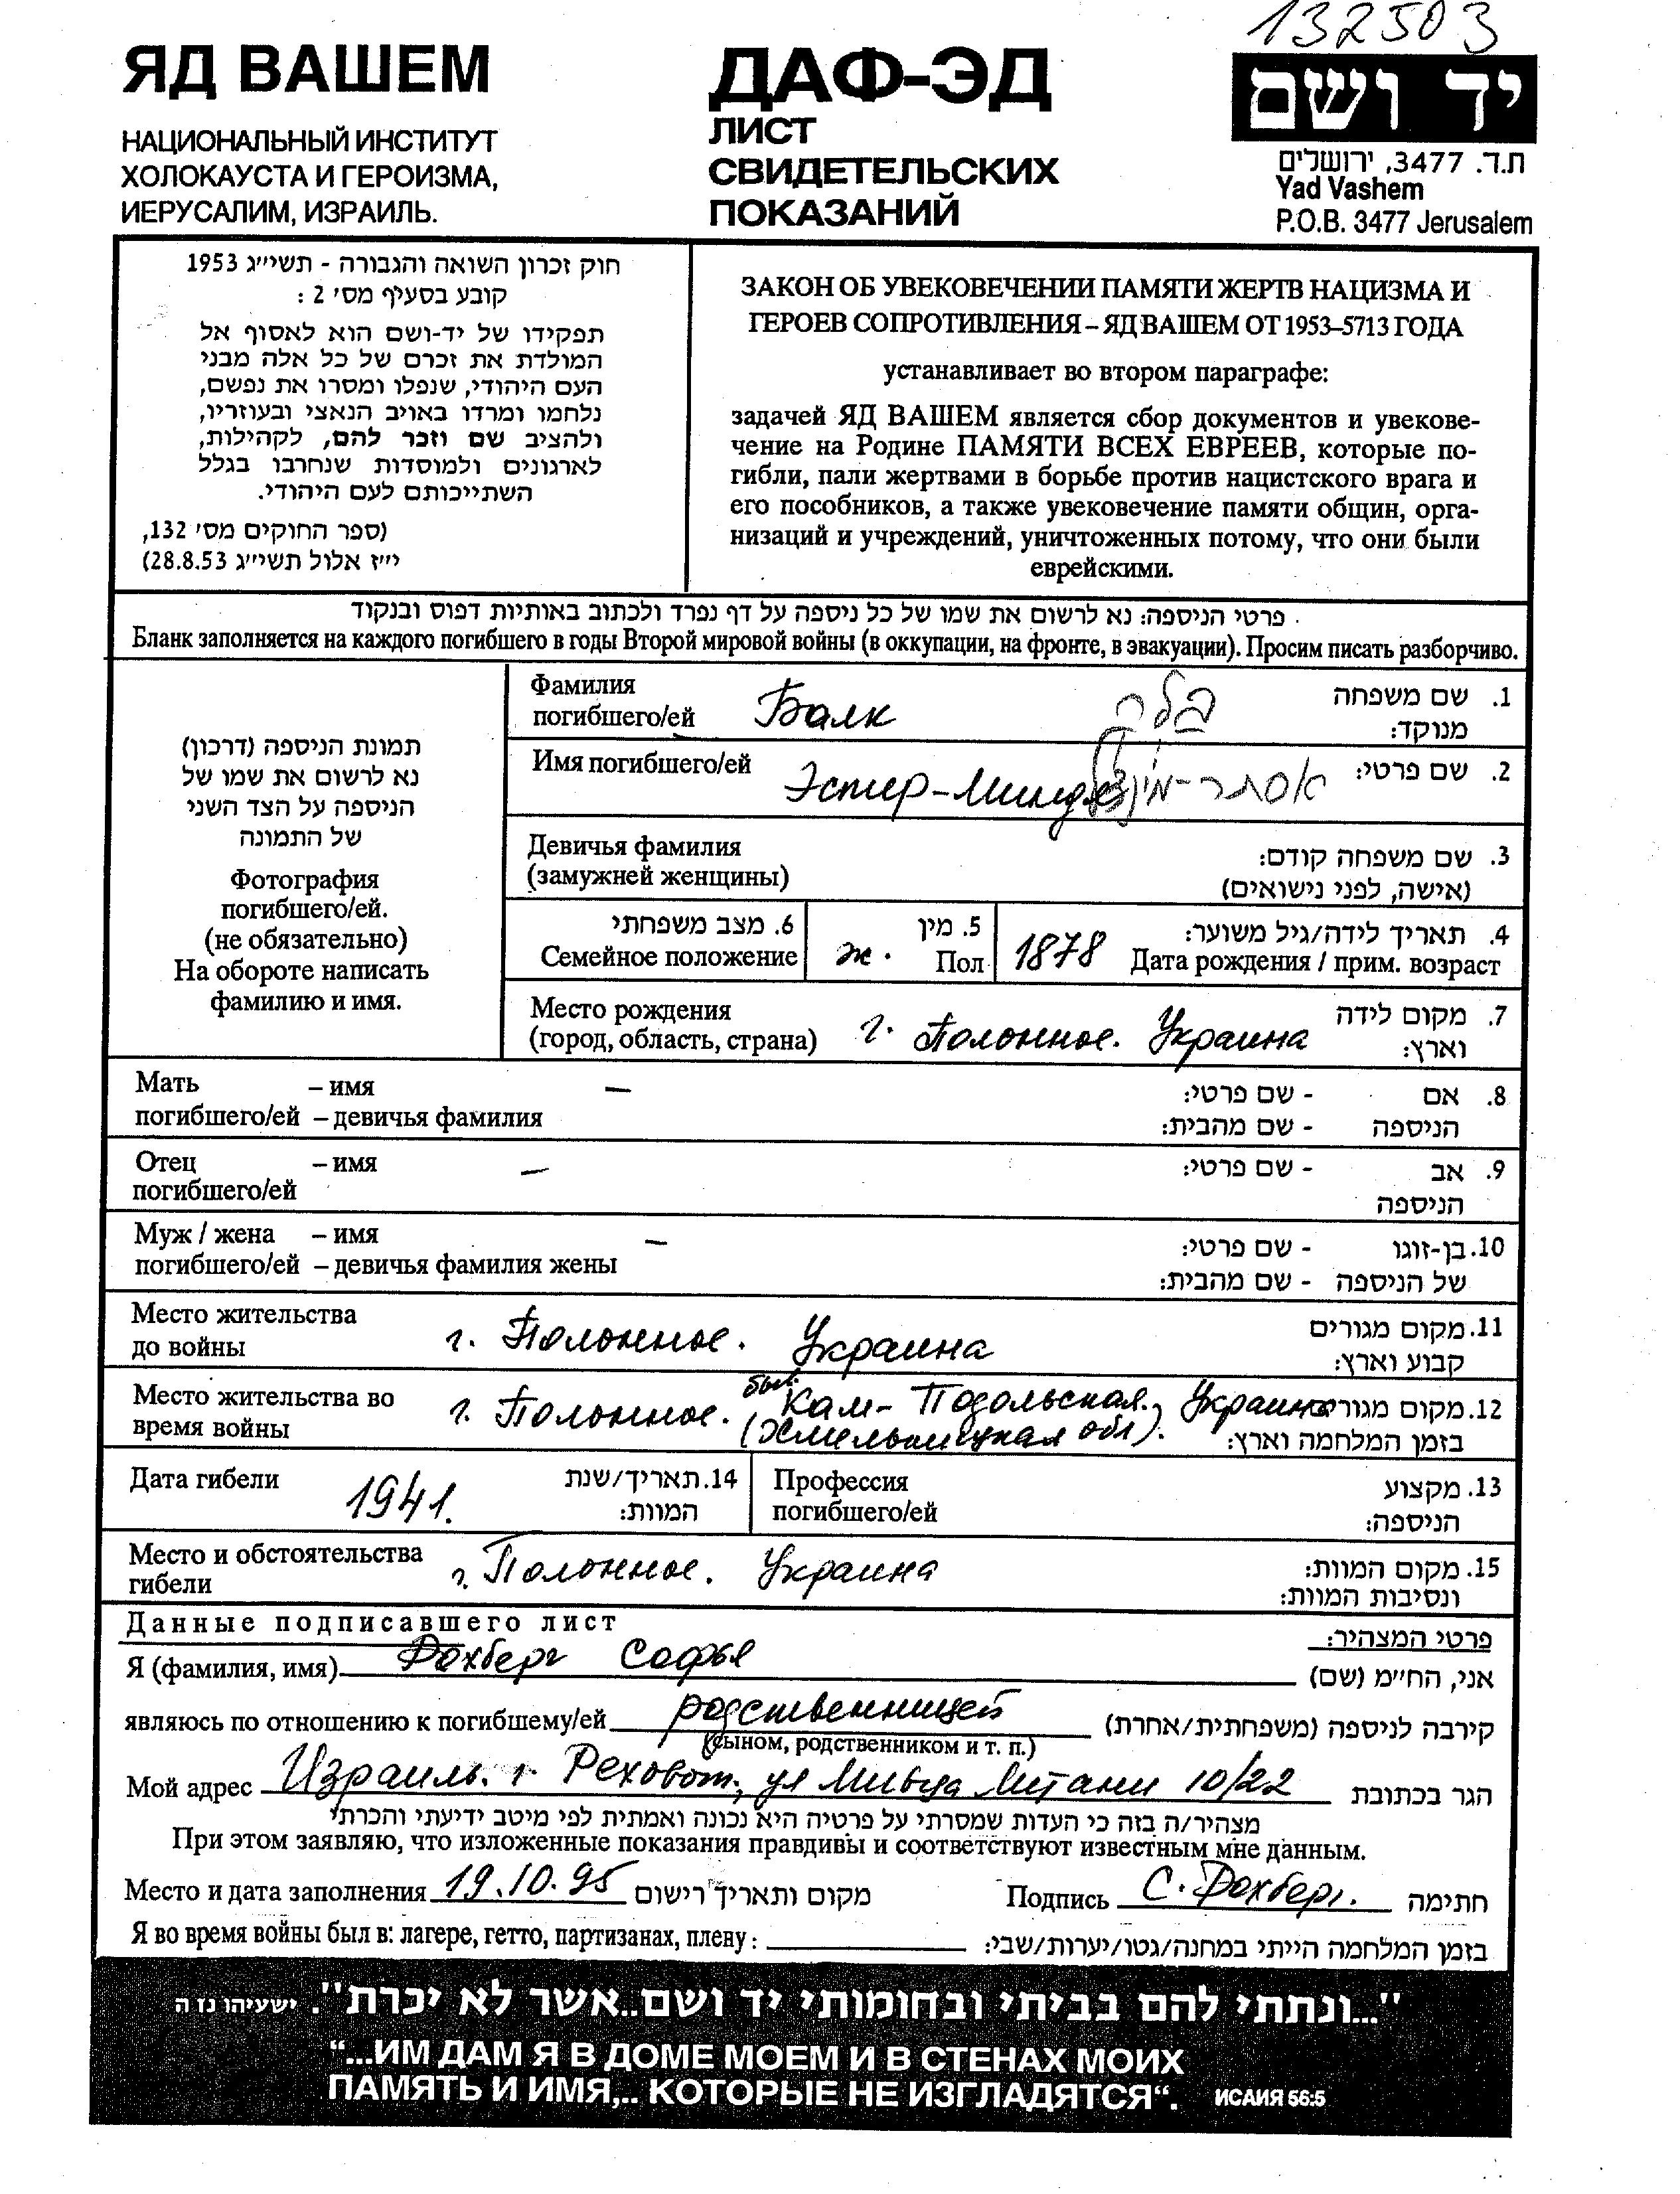 132503
ЯД ВАШЕМ
НАЦИОНАЛЬНЫЙ ИНСТИТУТ
ХОЛОКАУСТА И ГЕРОИЗМА,
ИЕРУСАЛИМ, ИЗРАИЛЬ.
ДАФ-ЭД
ЛИСТ
СВИДЕТЕЛЬСКИХ
ПОКАЗАНИЙ
יד ושם
ת.ד. 3477, ירושלים
Yad Vashem
P.O.B. 3477 Jerusalem
חוק זכרון השואה והגבורה - תשי״ג 1953
קובע בסעיף מס׳ 2 :
תפקידו של יד-ושם הוא לאסוף אל
המולדת את זכרם של כל אלה מבני
העם היהודי, שנפלו ומסרו את נפשם,
נלחמו ומרדו באויב הנאצי ובעוזריו,
ולהציב שם וזכר להם, לקהילות,
לארגונים ולמוסדות שנחרבו בגלל
השתייכותם לעם היהודי.
(ספר החוקים מס׳ 132,
י״ז אלול תשי״ג 28.8.53)
ЗАКОН ОБ УВЕКОВЕЧЕНИИ ПАМЯТИ ЖЕРТВ НАЦИЗМА И
ГЕРОЕВ СОПРОТИВЛЕНИЯ – ЯД ВАШЕМ ОТ 1953–5713 ГОДА
устанавливает во втором параграфе:
задачей ЯД ВАШЕМ является сбор документов и увекове-
чение на Родине ПАМЯТИ ВСЕХ ЕВРЕЕВ, которые по-
гибли, пали жертвами в борьбе против нацистского врага и
его пособников, а также увековечение памяти общин, орга-
низаций и учреждений, уничтоженных потому, что они были
еврейскими.
פרטי הניספה: נא לרשום את שמו של כל ניספה על דף נפרד ולכתוב באותיות דפוס ובנקוד
Бланк заполняется на каждого погибшего в годы Второй мировой войны (в оккупации, на фронте, в эвакуации). Просим писать разборчиво.
תמונת הניספה (דרכון)
נא לרשום את שמו של
הניספה על הצד השני
של התמונה
Фотография
погибшего/ей.
(не обязательно)
На обороте написать
фамилию и имя.
Фамилия
погибшего/ей Балк בלק 1. שם משפחה
מנוקד:
Имя погибшего/ей Эстер-Миндл אסתר-מינדל 2. שם פרטי:
Девичья фамилия 3. שם משפחה קודם:
(замужней женщины) (אישה, לפני נישואים)
6. מצב משפחתי 5. מין 4. תאריך לידה/גיל משוער:
Семейное положение ж. Пол 1878 Дата рождения / прим. возраст
Место рождения 7. מקום לידה
(город, область, страна) г. Полонное. Украина וארץ:
Мать – имя – - שם פרטי: 8. אם
погибшего/ей – девичья фамилия - שם מהבית: הניספה
Отец – имя – - שם פרטי: 9. אב
погибшего/ей הניספה
Муж / жена – имя – - שם פרטי: 10. בן-זוגו
погибшего/ей – девичья фамилия жены - שם מהבית: של הניספה
Место жительства 11. מקום מגורים
до войны г. Полонное. Украина קבוע וארץ:
Место жительства во быв. Кам-Подольская. Украина 12. מקום מגורים
время войны г. Полонное. (Хмельницкая обл). בזמן המלחמה וארץ:
Дата гибели 1941. 14. תאריך/שנת
המוות:
Профессия 13. מקצוע
погибшего/ей הניספה:
Место и обстоятельства 15. מקום המוות:
гибели г. Полонное. Украина ונסיבות המוות:
Данные подписавшего лист פרטי המצהיר:
Я (фамилия, имя) Дохберг Софья אני, החי״מ (שם)
являюсь по отношению к погибшему/ей родственницей קירבה לניספה (משפחתית/אחרת)
(сыном, родственником и т. п.)
Мой адрес Израиль. г Реховот, ул Мивца Литани 10/22 הגר בכתובת
מצהיר/ה בזה כי העדות שמסרתי על פרטיה היא נכונה ואמתית לפי מיטב ידיעתי והכרתי
При этом заявляю, что изложенные показания правдивы и соответствуют известным мне данным.
Место и дата заполнения 19.10.95 מקום ותאריך רישום Подпись С. Дохберг. חתימה
Я во время войны был в: лагере, гетто, партизанах, плену: בזמן המלחמה הייתי במחנה/גטו/יערות/שבי:
"...ונתתי להם בביתי ובחומותי יד ושם..אשר לא יכרת". ישעיהו נו ה
“...ИМ ДАМ Я В ДОМЕ МОЕМ И В СТЕНАХ МОИХ
ПАМЯТЬ И ИМЯ,.. КОТОРЫЕ НЕ ИЗГЛАДЯТСЯ“. ИСАИЯ 56:5